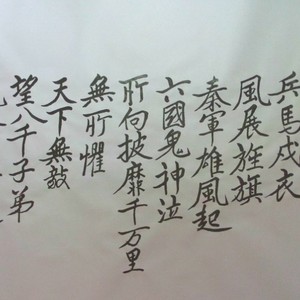 兵馬戍衣
風展旌旗
秦軍雄風起
六國鬼神泣
所向披靡千万里
無所懼
天下無敵
望八千子弟